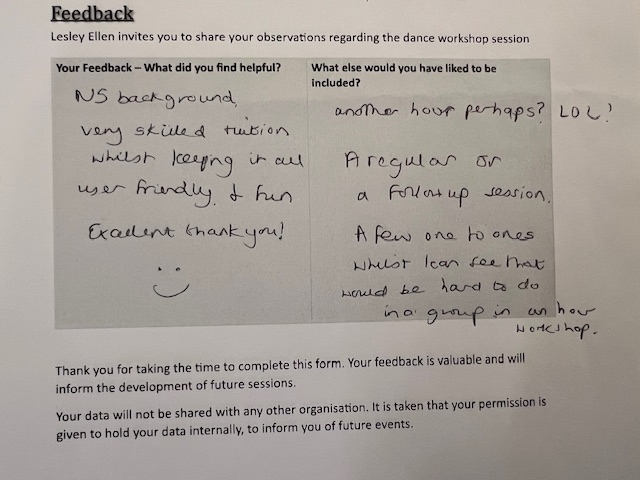 Feedback
Lesley Ellen invites you to share your observations regarding the dance workshop session
Your Feedback – What did you find helpful?
NS background,
very skilled tuition
whilst keeping it all
user friendly & fun
Excellent thank you!
What else would you have liked to be
included?
another hour perhaps? LOL!
A regular or
a follow up session.
A few one to ones
whilst I can see that
would be hard to do
in a group in an hour
workshop.
Thank you for taking the time to complete this form. Your feedback is valuable and will
inform the development of future sessions.
Your data will not be shared with any other organisation. It is taken that your permission is
given to hold your data internally, to inform you of future events.